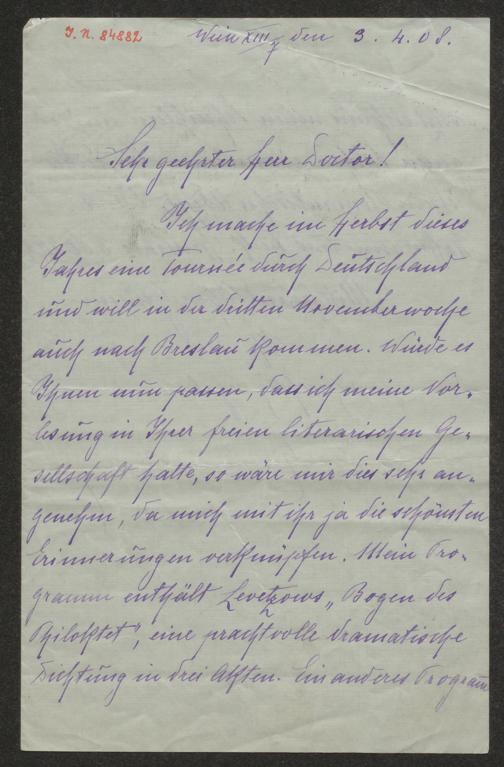 J.N. 84882
Wien XIII/7 den 3.4.08.
Sehr geehrter Herr Doctor!
Ich mache im Herbst dieses
Jahres eine Tournée durch Deutschland
und will in der dritten Novemberwoche
auch nach Breslau kommen. Würde es
Ihnen nun passen, dass ich meine Vor-
lesung in Ihrer freien literarischen Ge-
sellschaft halte, so wäre mir dies sehr an-
genehm, da mich mit ihr ja die schönsten
Erinnerungen verknüpfen. Mein Pro-
gramm enthält Levetzows „Bogen des
Philoktet", eine prachtvolle dramatische
Dichtung in drei Akten. Ein anderes Programm